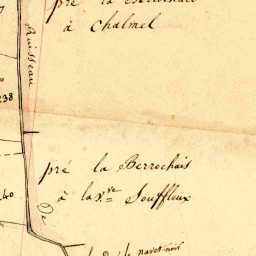 pré la
à Chalmel
Ruisseau
238
pré la Berrochais
à la V.ve Souffleux
40
De